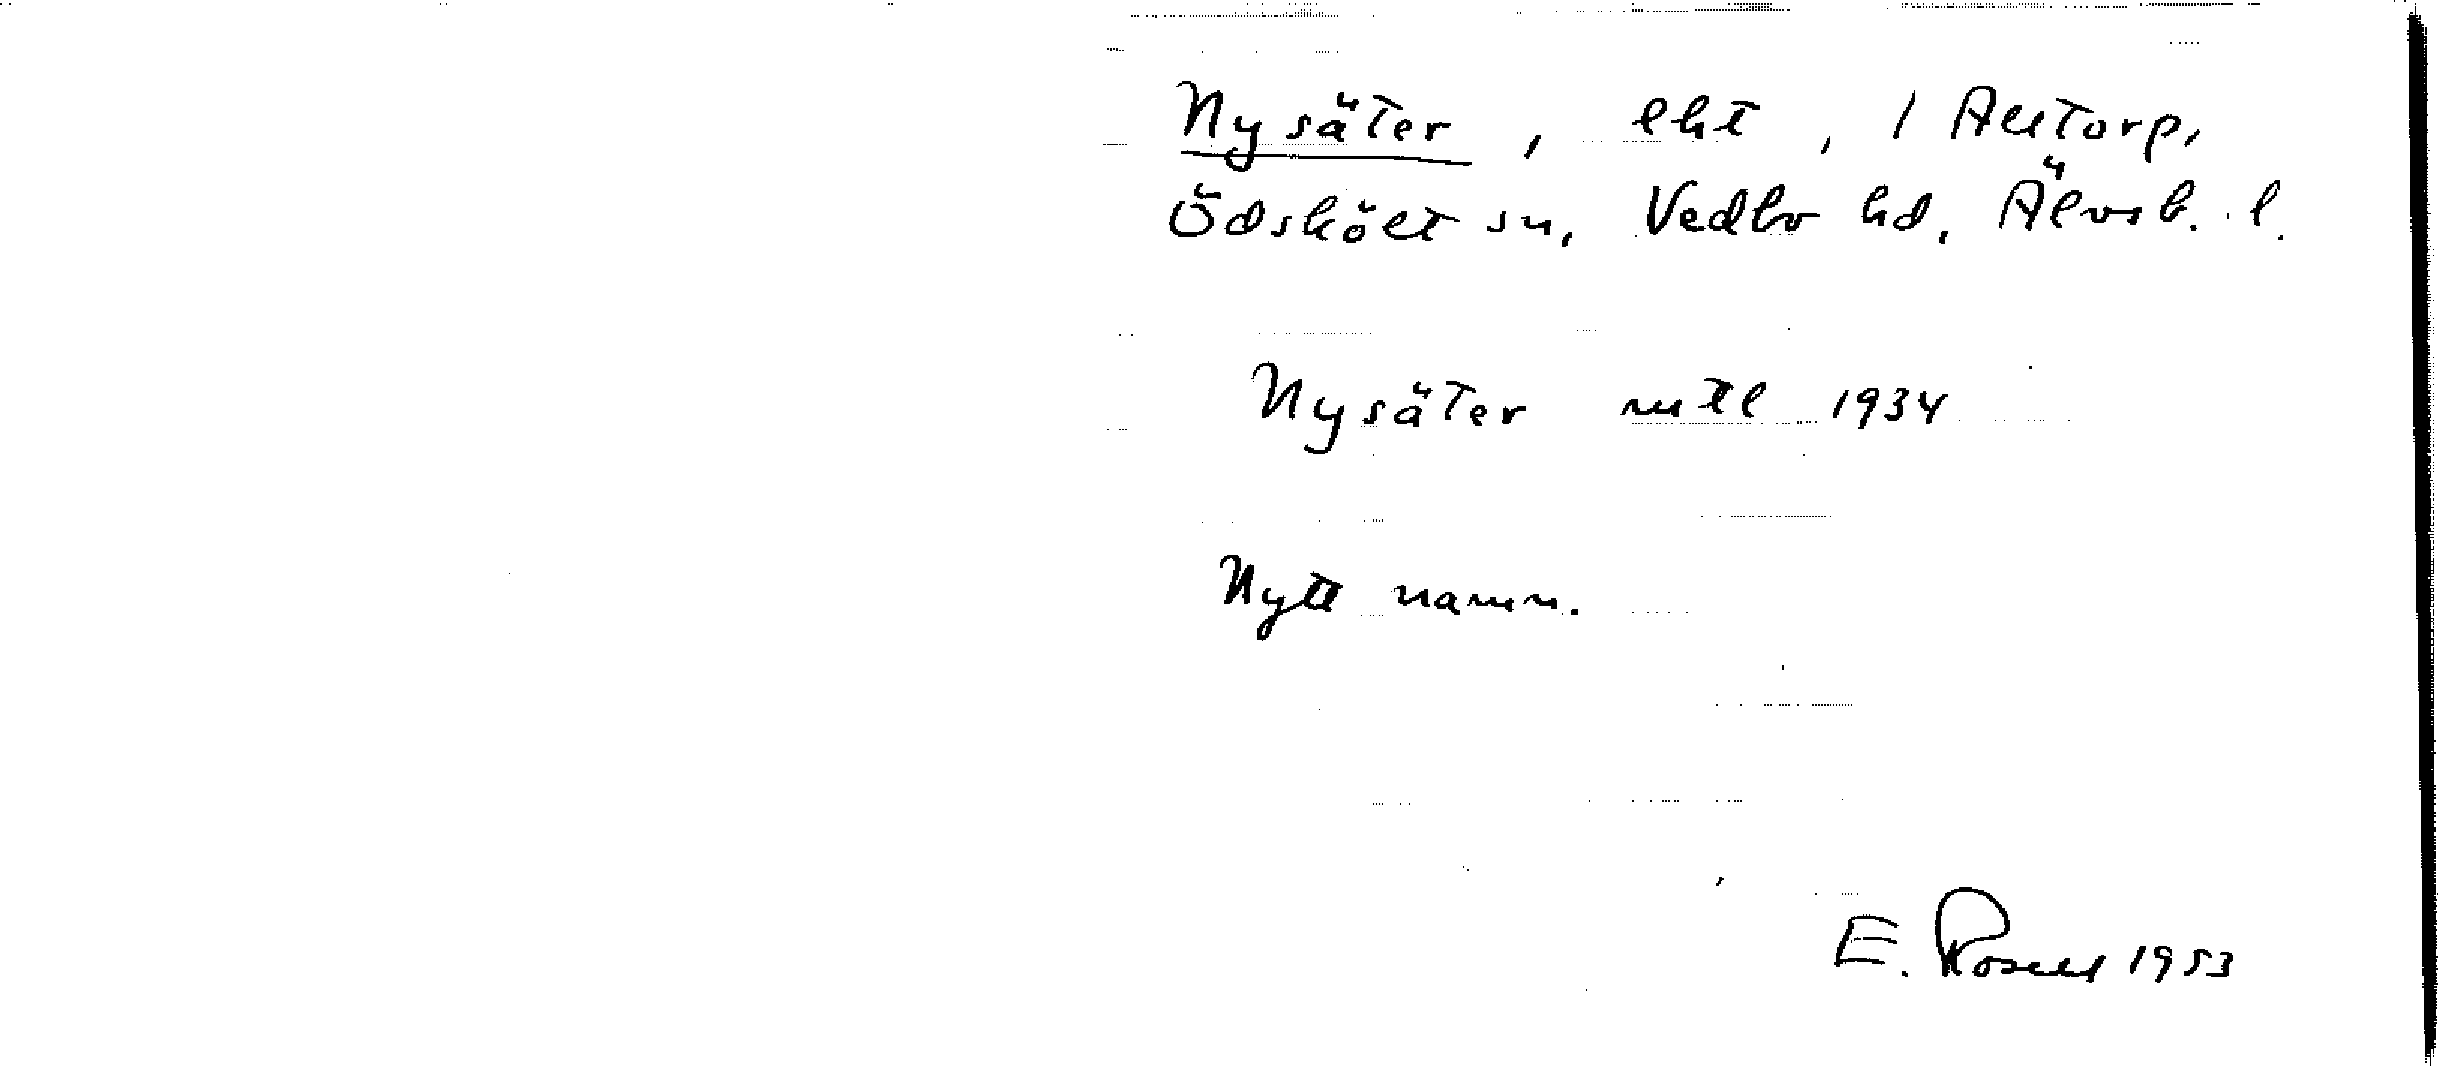 Nysäter, lht, 1 Alltorp,
Ödskölt sn, Vedbo hd, Älvsb. l.
Nysäter mtl 1934
Nytt namn.
E. Rosell 1953